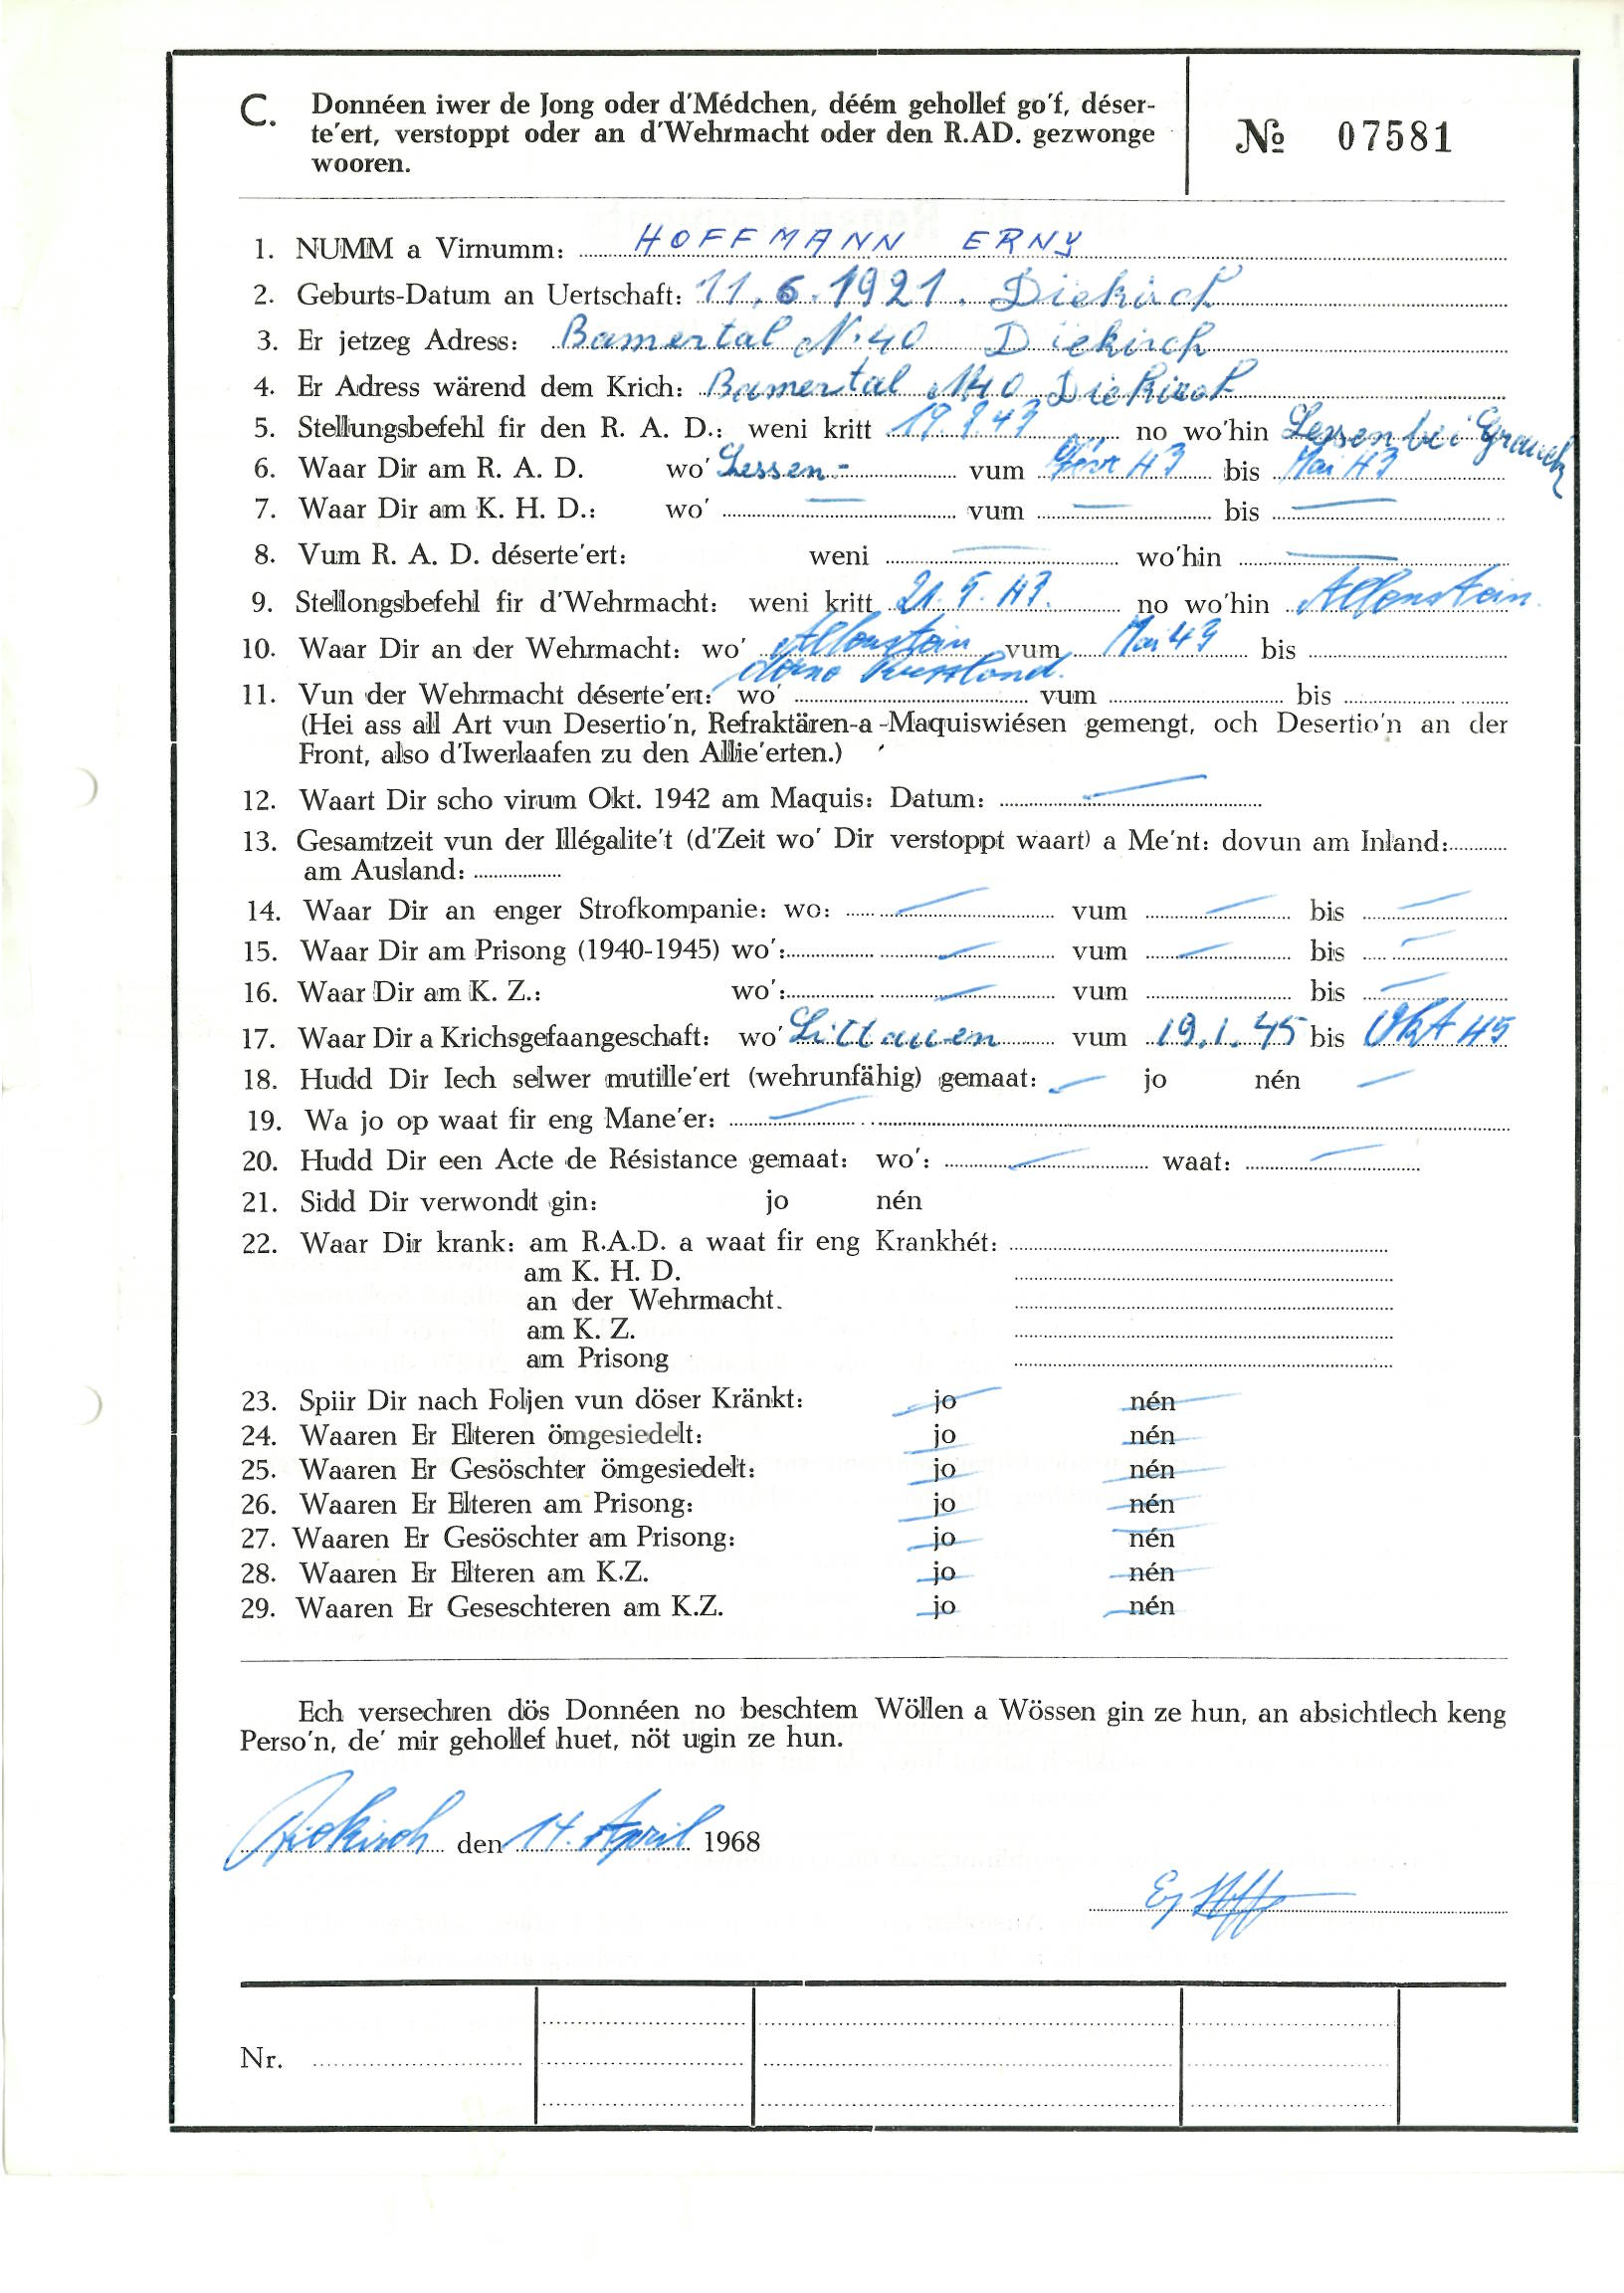 C. Donnéen iwer de Jong oder d'Médchen, déém gehollef go'f, déser-
te'ert, verstoppt oder an d'Wehrmacht oder den R.AD. gezwonge
wooren.
№ 07581
1. NUMM a Virnumm: HOFFMANN ERNY
2. Geburts-Datum an Uertschaft: 11.6.1921. Diekirch
3. Er jetzeg Adress: Bamertal N. 40 Diekirch
4. Er Adress wärend dem Krich: Bamertal N40 Diekirch
5. Stellungsbefehl fir den R. A. D.: weni kritt no wo'hin Lessen bei
6. Waar Dir am R. A. D. wo' Lessen - vum 43 bis Mai 43
7. Waar Dir am K. H. D.: wo' — vum — bis —
8. Vum R. A. D. déserte'ert: weni — wo'hin —
9. Stellongsbefehl fir d'Wehrmacht: weni kritt 21. 5. 43. no wo'hin Allenstein.
10. Waar Dir an der Wehrmacht: wo' Allenstein vum Mai 43 bis
Russland.
11. Vun der Wehrmacht déserte'ert: wo' vum bis
(Hei ass all Art vun Desertio'n, Refraktären-a -Maquiswiésen gemengt, och Desertio'n an der
Front, also d'Iwerlaafen zu den Allie'erten.)
12. Waart Dir scho virum Okt. 1942 am Maquis: Datum: —
13. Gesamtzeit vun der Illégalite't (d'Zeit wo' Dir verstoppt waart) a Me'nt: dovun am Inland:
am Ausland:
14. Waar Dir an enger Strofkompanie: wo: — vum — bis —
15. Waar Dir am Prisong (1940-1945) wo': — vum — bis —
16. Waar Dir am K. Z.: wo': — vum bis —
17. Waar Dir a Krichsgefaangeschaft: wo' Littauen vum 19.1.45 bis Okt 45
18. Hudd Dir Iech selwer mutille'ert (wehrunfähig) gemaat: — jo nén —
19. Wa jo op waat fir eng Mane'er: —
20. Hudd Dir een Acte de Résistance gemaat: wo': — waat: —
21. Sidd Dir verwondt gin: jo nén
22. Waar Dir krank: am R.A.D. a waat fir eng Krankhét:
am K. H. D.
an der Wehrmacht.
am K. Z.
am Prisong
23. Spiir Dir nach Foljen vun döser Kränkt: jo nén
24. Waaren Er Elteren ömgesiedelt: jo nén
25. Waaren Er Gesöschter ömgesiedelt: jo nén
26. Waaren Er Elteren am Prisong: jo nén
27. Waaren Er Gesöschter am Prisong: jo nén
28. Waaren Er Elteren am K.Z. jo nén
29. Waaren Er Geseschteren am K.Z. jo nén
Ech versechren dös Donnéen no beschtem Wöllen a Wössen gin ze hun, an absichtlech keng
Perso'n, de' mir gehollef huet, nöt ugin ze hun.
Diekirch den 14. April 1968
Nr.